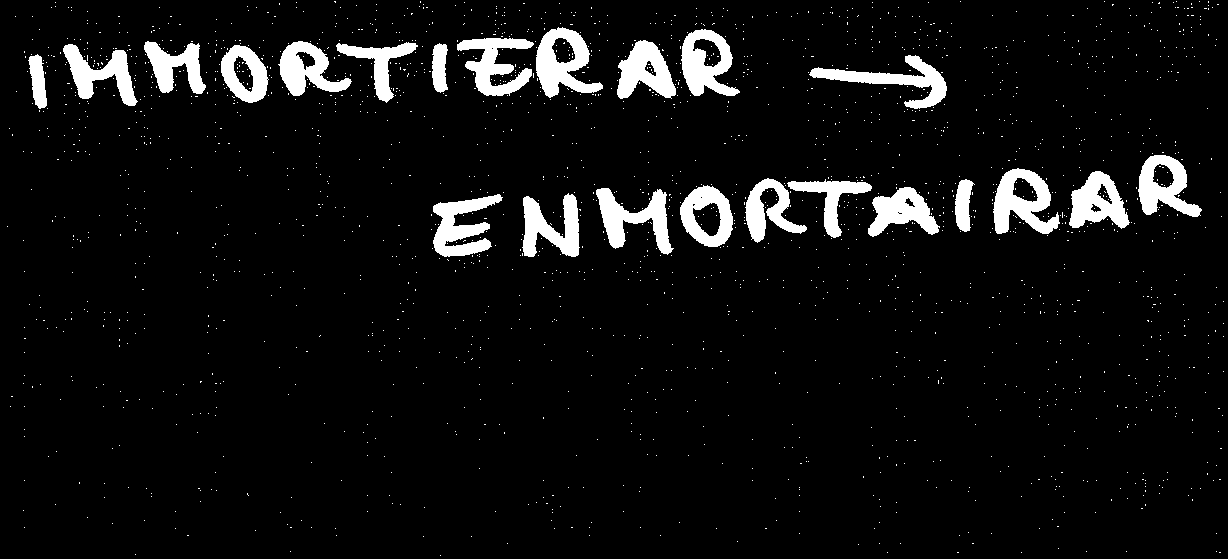 IMMORTIERAR →
ENMORTAIRAR